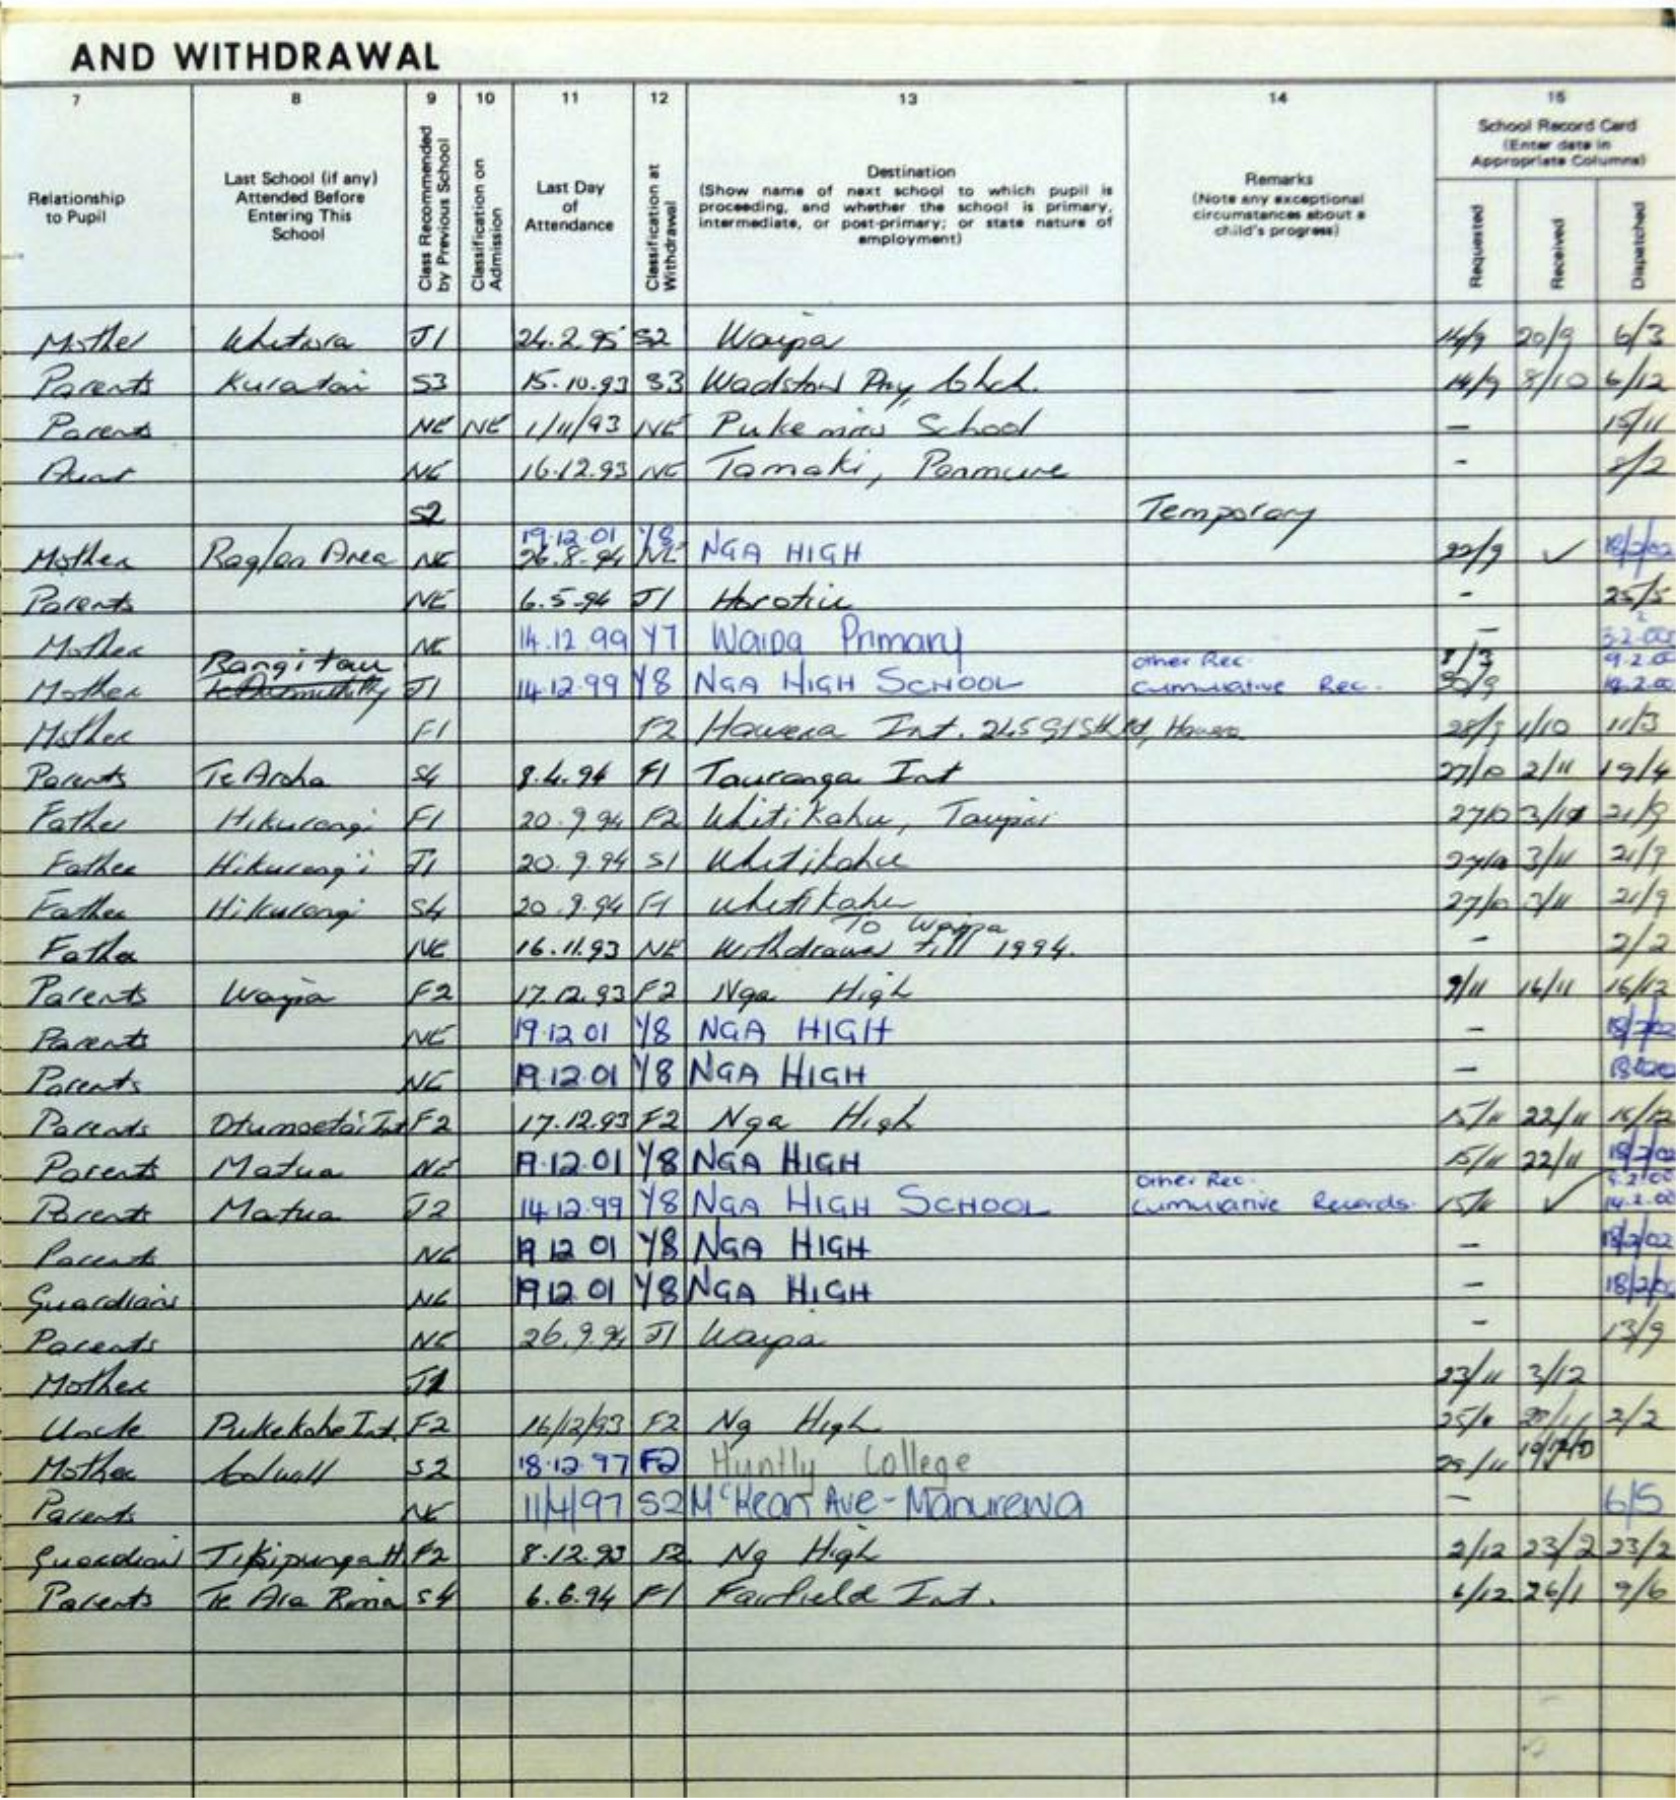 AND WITHDRAWAL
7 8 9 10 11 12 13 14 15
Relationship to Pupil
Last School (if any) Attended Before Entering This School
Class Recommended by Previous School
Classification on Admission
Last Day of Attendance
Classification at Withdrawal
Destination
(Show name of next school to which pupil is proceeding, and whether the school is primary, intermediate, or post-primary; or state nature of employment)
Remarks
(Note any exceptional circumstances about a child's progress)
School Record Card
(Enter date in Appropriate Columns)
Requested Received Dispatched
Mother J1 24.2.95 S2 Waipa 14/9 20/9 6/3
Parents S3 15.10.93 S3 14/9 8/10 6/12
Parents NE NE 1/11/93 NE Pukemiro School - 15/11
Aunt NE 16.12.93 NE Tamaki, Panmure - 2/2
S2 Temporary
19.12.01 Y8
Mother Raglan Area NE 26.8.94 NE NGA HIGH 22/9 ✓ 18/2/02
Parents NE 6.5.94 J1 Horotiu - 25/5
Mother NE 14.12.99 Y7 Waipa Primary -
Rangitau other Rec. 9.2.00
Mother J1 14.12.99 Y8 NGA HIGH SCHOOL Cumulative Rec. 30/9 14.2.00
Mother F1 F2 Hawera Int. Hawera 1/10 11/3
Parents Te Aroha S4 8.4.94 F1 Tauranga Int 27/10 2/11 19/4
Father Hikurangi F1 20.9.94 F2 Whitikahu, Taupiri 27/10 21/9
Father Hikurangi J1 20.9.94 S1 Whitikahu 27/10 3/11 21/9
Father Hikurangi S4 20.9.94 F1 Whitikahu 27/10 3/11 21/9
To Waipa
Father NE 16.11.93 NE Withdrawn till 1994. - 2/2
Parents Waipa F2 17.12.93 F2 Nga High 9/11 16/11 16/12
Parents NE 19.12.01 Y8 NGA HIGH - 18/2/02
Parents NE 19.12.01 Y8 NGA HIGH -
Parents Otumoetai Int F2 17.12.93 F2 Nga High 15/11 22/11 16/12
Parents Matua NE 19.12.01 Y8 NGA HIGH 15/11 22/11 18/2/02
Other Rec.
Parents Matua J2 14.12.99 Y8 NGA HIGH SCHOOL Cumulative Records. 15/11 ✓ 14.2.00
Parents NE 19 12 01 Y8 NGA HIGH - 18/2/02
Guardians NE 19 12 01 Y8 NGA HIGH - 18/2/02
Parents NE 26.9.94 J1 Waipa - 13/9
Mother 23/11 3/12
Uncle Pukekohe Int. F2 16/12/93 F2 Ng High 2/2
Mother S2 18.12.97 F2 Huntly College
Parents NE 11/4/97 S2 McKean Ave - Manurewa - 6/5
Guardian Tikipunga H F2 8.12.93 F2 Ng High 2/12 23/2 23/2
Parents S4 6.6.94 F1 Fairfield Int. 6/12 26/1 9/6